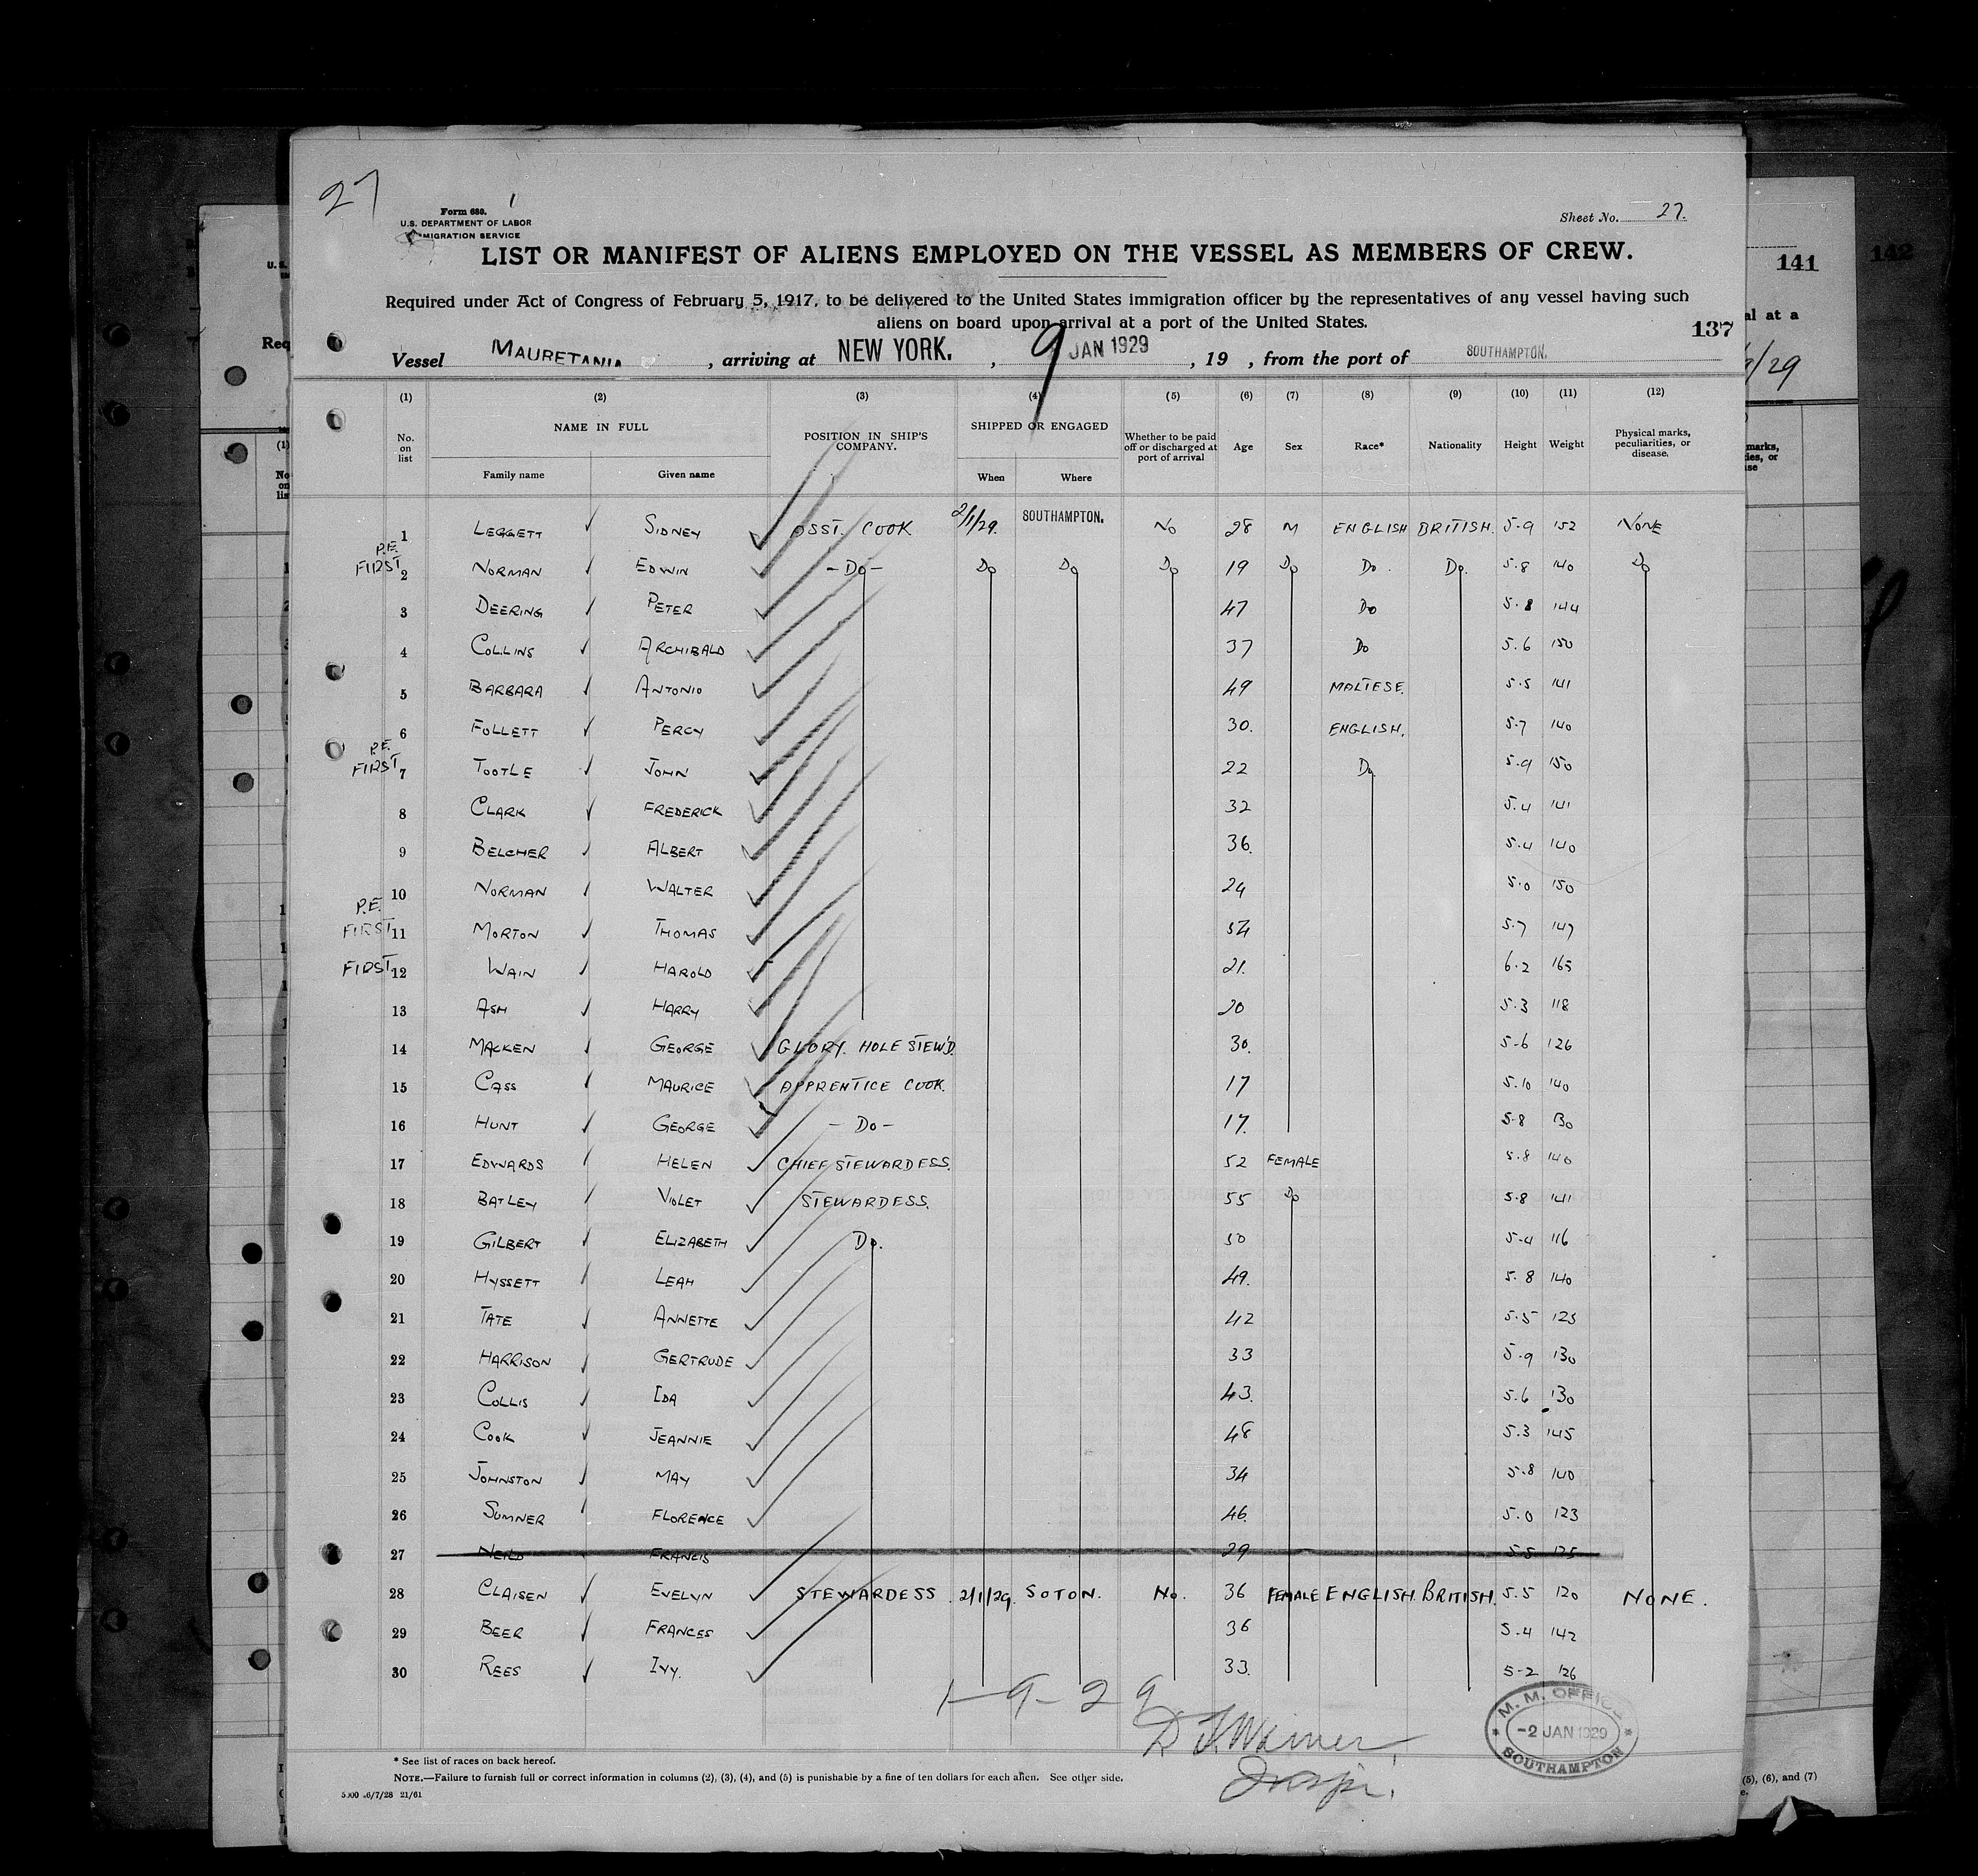 27
Form 680.
U.S. DEPARTMENT OF LABOR
IMMIGRATION SERVICE
Sheet No. 27.
LIST OR MANIFEST OF ALIENS EMPLOYED ON THE VESSEL AS MEMBERS OF CREW.
Required under Act of Congress of February 5, 1917, to be delivered to the United States immigration officer by the representatives of any vessel having such
aliens on board upon arrival at a port of the United States.
137
Vessel MAURETANIA, arriving at NEW YORK., 9 JAN 1929, 19 , from the port of SOUTHAMPTON.
(1) (2) (3) (4) (5) (6) (7) (8) (9) (10) (11) (12)
No. on list NAME IN FULL Family name Given name POSITION IN SHIP'S COMPANY. SHIPPED OR ENGAGED When Where Whether to be paid off or discharged at port of arrival Age Sex Race* Nationality Height Weight Physical marks, peculiarities, or disease.
1 LEGGETT SIDNEY ASST. COOK 2/1/29. SOUTHAMPTON. NO 28 M ENGLISH BRITISH. 5-9 152 NONE
P.E. FIRST 2 NORMAN EDWIN -DO- DO DO DO 19 DO DO. DO. 5.8 140 DO
3 DEERING PETER 47 DO 5.8 144
4 COLLINS ARCHIBALD 37 DO 5.6 150
5 BARBARA ANTONIO 49 MALTESE. 5.5 141
6 FOLLETT PERCY 30. ENGLISH. 5-7 140
P.E. FIRST 7 TOOTLE JOHN 22 DO 5.9 150
8 CLARK FREDERICK 32 5.4 141
9 BELCHER ALBERT 36. 5.4 140
10 NORMAN WALTER 24 5.0 150
P.E. FIRST 11 MORTON THOMAS 54 5-7 147
FIRST 12 WAIN HAROLD 21. 6.2 165
13 ASH HARRY 20 5.3 118
14 MACKEN GEORGE GLORY. HOLE STEW'D. 30. 5-6 126
15 CASS MAURICE APPRENTICE COOK. 17 5.10 140
16 HUNT GEORGE -DO- 17. 5-8 130
17 EDWARDS HELEN CHIEF STEWARDESS. 52 FEMALE 5.8 140
18 BATLEY VIOLET STEWARDESS. 55 DO 5.8 141
19 GILBERT ELIZABETH DO. 50 5-4 116
20 HYSSETT LEAH 49. 5.8 140
21 TATE ANNETTE 42 5.5 125
22 HARRISON GERTRUDE 33 5.9 130
23 COLLIS IDA 43. 5.6 130
24 COOK JEANNIE 48 5.3 145
25 JOHNSTON MAY 34 5.8 140
26 SUMNER FLORENCE 46. 5.0 123
27 NEILD FRANCIS 29 5.5 125
28 CLAISEN EVELYN STEWARDESS. 2/1/29. SOTON. NO. 36 FEMALE ENGLISH. BRITISH. 5.5 120 NONE.
29 BEER FRANCES 36 5.4 142
30 REES IVY. 33. 5-2 126
1-9-29
M. M. OFFICE
-2 JAN 1929
SOUTHAMPTON
* See list of races on back hereof.
NOTE.—Failure to furnish full or correct information in columns (2), (3), (4), and (5) is punishable by a fine of ten dollars for each alien. See other side.
141
142
al at a
(5), (6), and (7)